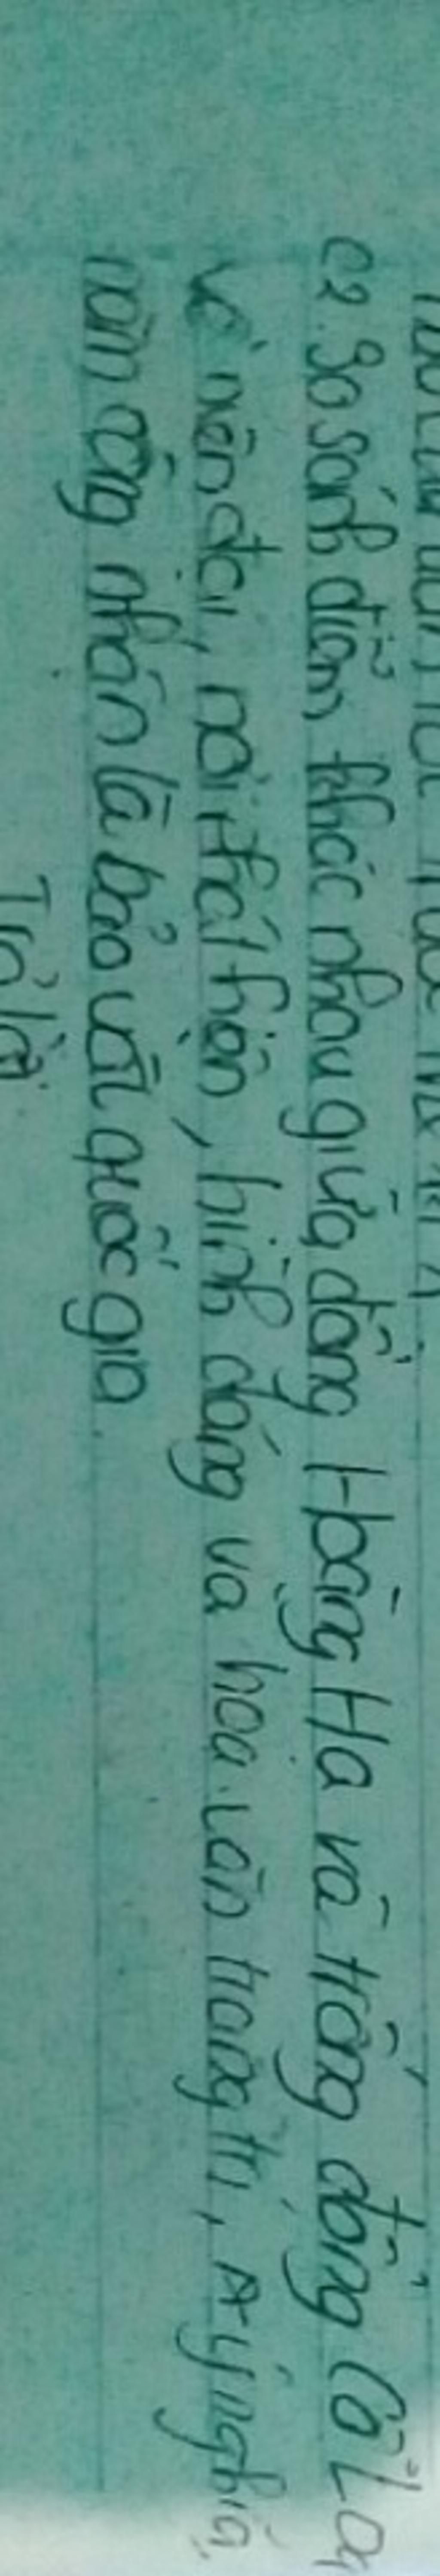 C2. So sánh điểm khác nhau giữa đồng Hoàng Hạ và trống đồng Cổ Loa
Về niên đại, nơi phát hiện, hình dáng và hoa văn trang trí, ý nghĩa,
năm công nhận là bảo vật quốc gia.
Trả lời